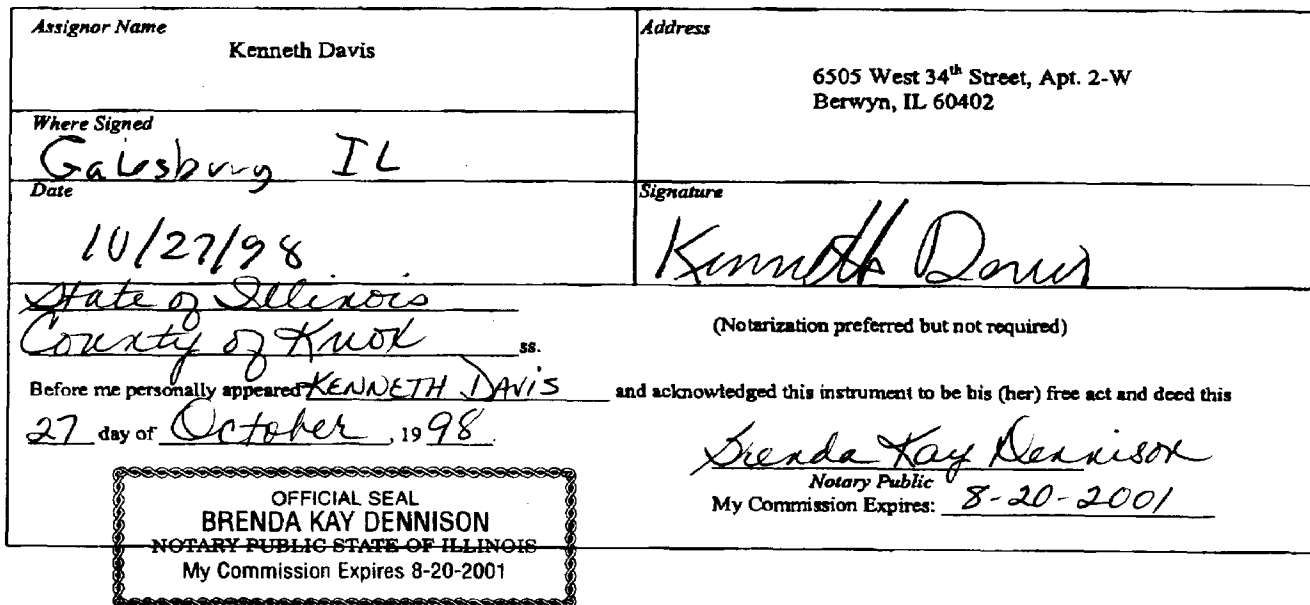 Assignor Name
Kenneth Davis
Address
6505 West 34th Street, Apt. 2-W
Berwyn, IL 60402
Where Signed
Galesburg IL
Date
10/27/98
Signature
Kenneth Davis
State of Illinois
County of Knox ss.
(Notarization preferred but not required)
Before me personally appeared KENNETH DAVIS and acknowledged this instrument to be his (her) free act and deed this
27 day of October, 19 98.
Brenda Kay Dennison
Notary Public
My Commission Expires: 8-20-2001
OFFICIAL SEAL
BRENDA KAY DENNISON
NOTARY PUBLIC STATE OF ILLINOIS
My Commission Expires 8-20-2001